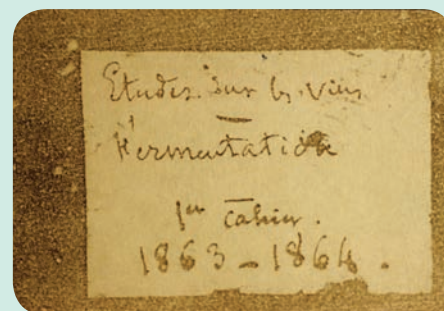 Etudes sur les vins
—
Fermentation
1er Cahier.
1863 – 1864.